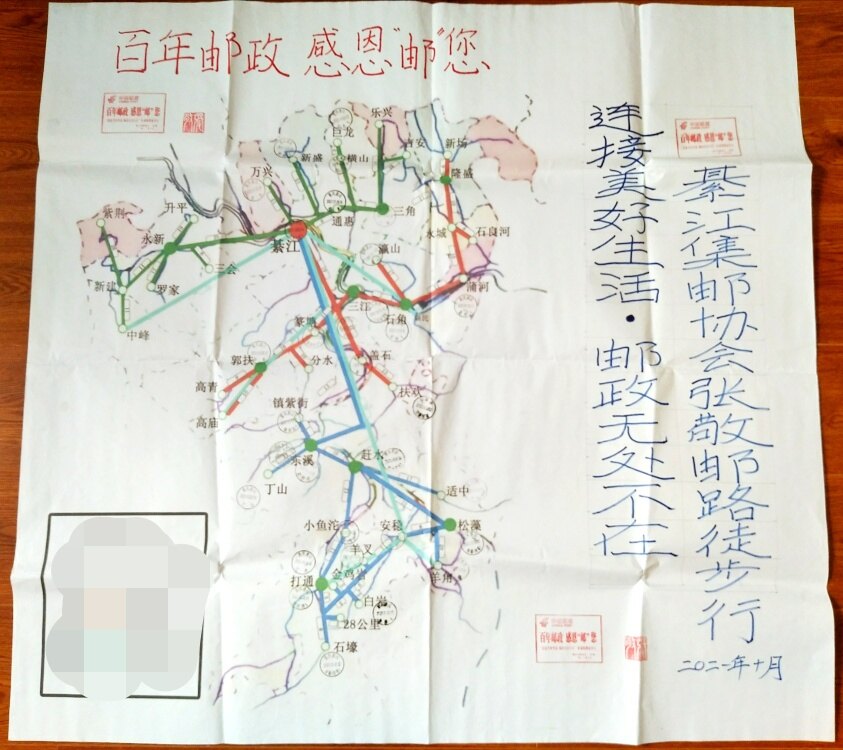 百年邮政 感恩“邮”您
百年邮政 感恩“邮”您
百年邮政 感恩“邮”您
连接美好生活·邮政无处不在
綦江集邮协会张敬邮路徒步行
二〇二一年十月
乐兴
巨龙
吉安
新场
新盛
横山
隆盛
万兴
紫荆
升平
通惠
三角
永新
綦江
永城
石良河
瀛山
三会
新建
罗家
三江
石角
蒲河
中峰
篆塘
郭扶
分水
盖石
高青
扶欢
镇紫街
高庙
东溪
赶水
丁山
适中
小鱼沱
安稳
松藻
羊叉
打通
金鸡岩
羊角
白岩
28公里
石壕
百年邮政 感恩“邮”您